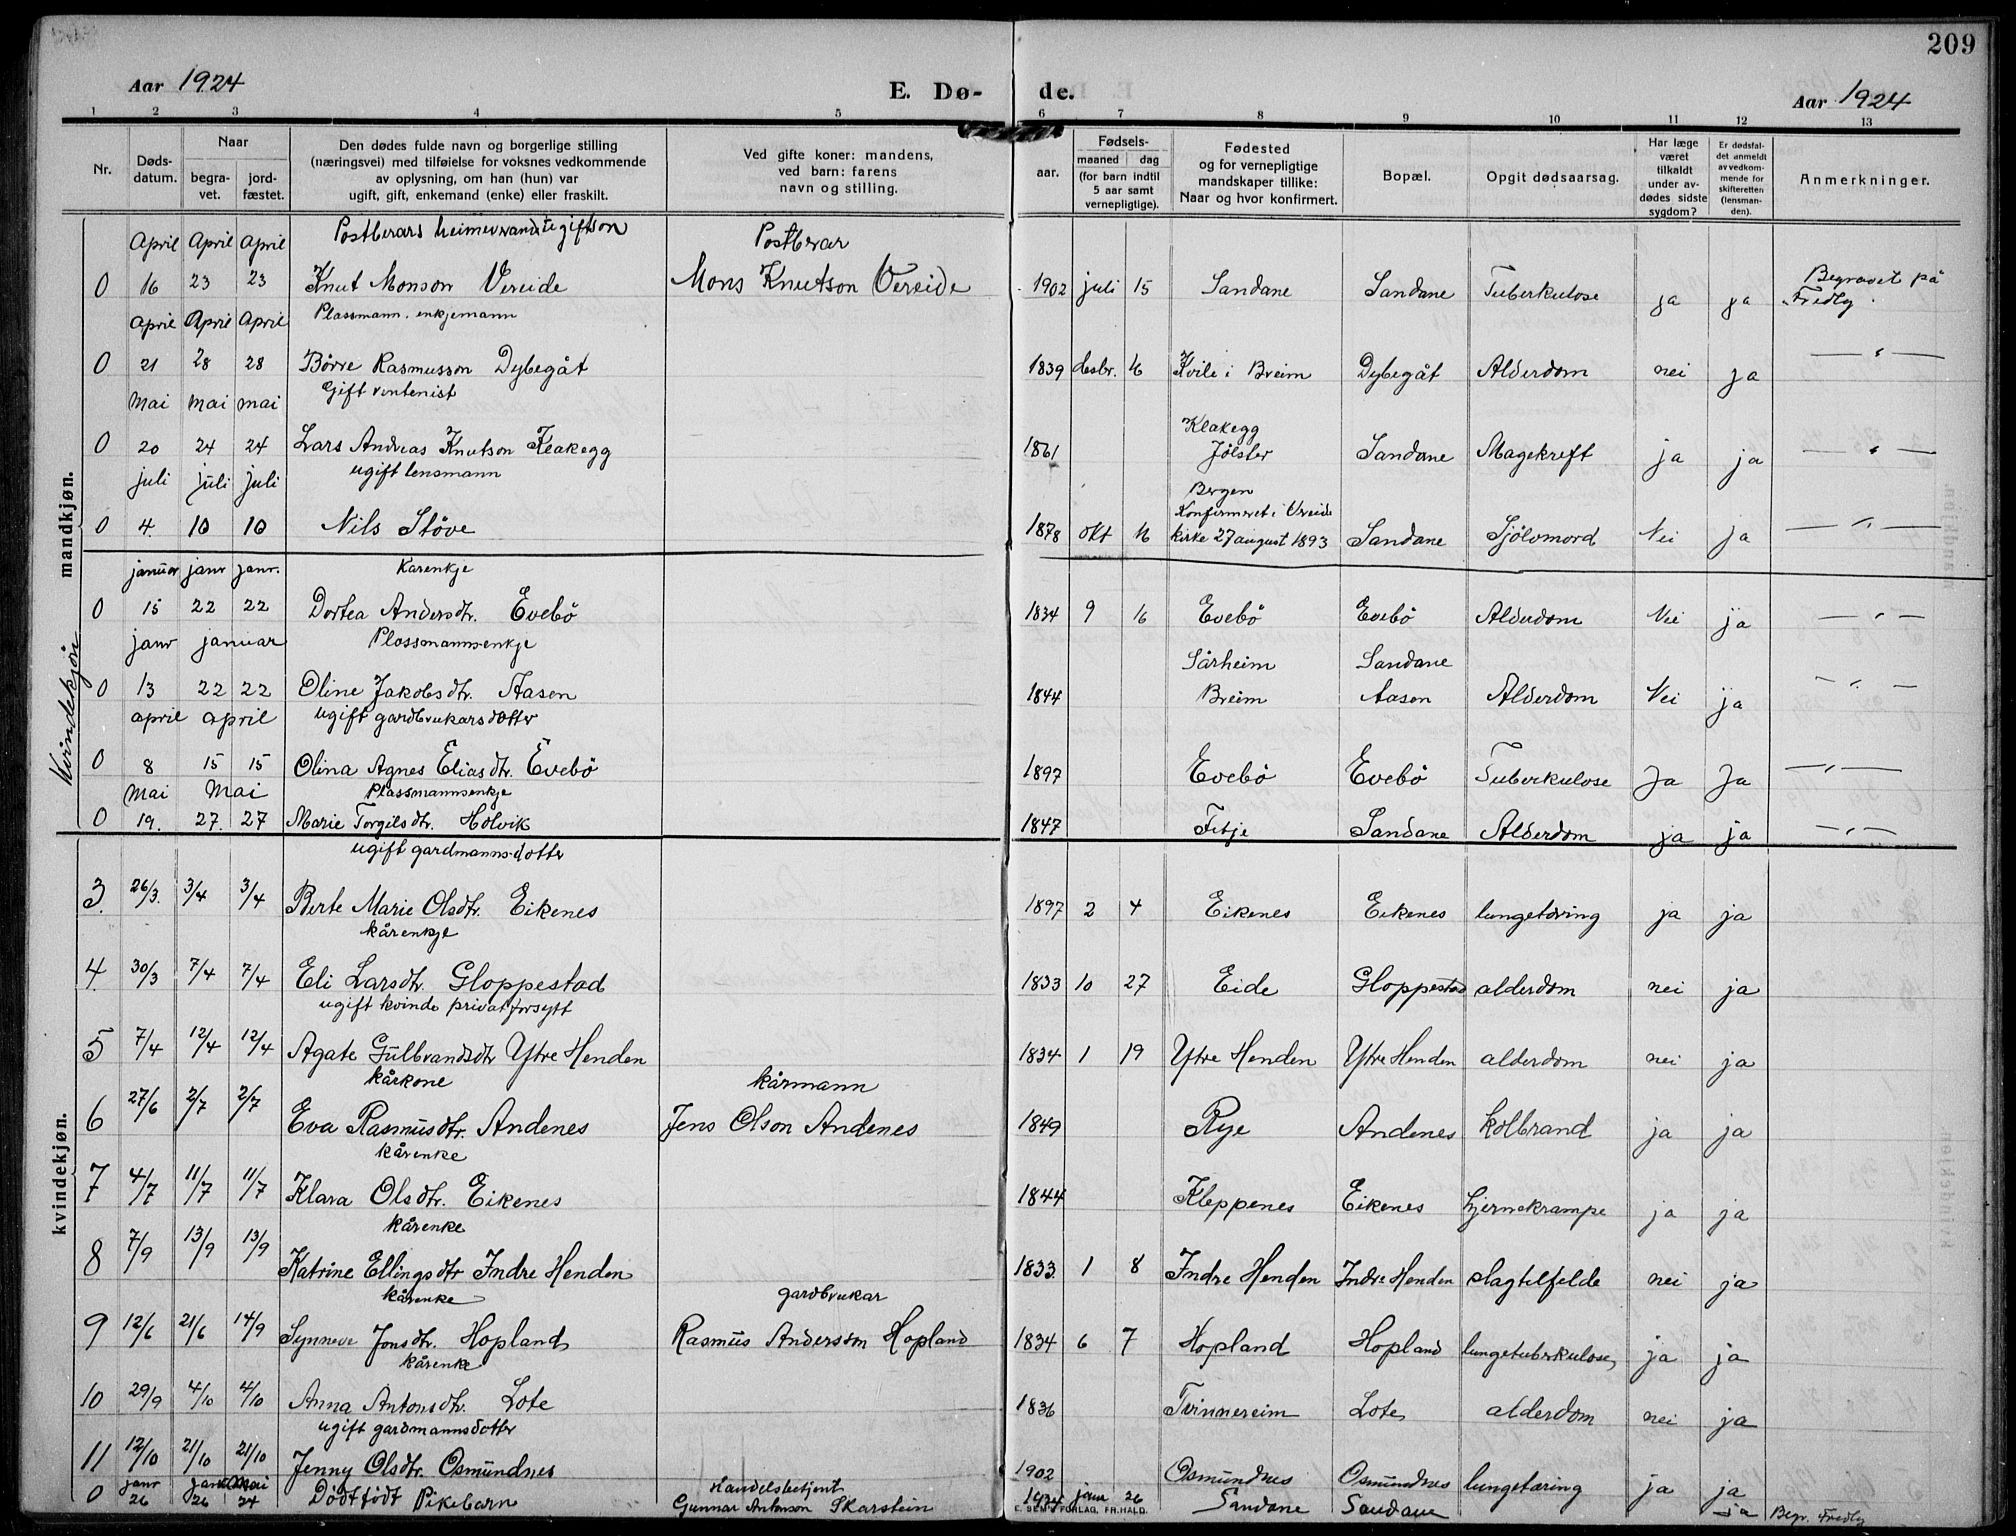 209
Aar 1924
E. Dø-
de.
Aar 1924
1 2 3 4 5 6 7 8 9 10 11 12 13
Nr.
Døds-
datum.
Naar
begra-
vet.
jord-
fæstet.
Den dødes fulde navn og borgerlige stilling
(næringsvei) med tilføielse for voksnes vedkommende
av oplysning, om han (hun) var
ugift, gift, enkemand (enke) eller fraskilt.
Ved gifte koner: mandens,
ved barn: farens
navn og stilling.
aar.
Fødsels-
maaned dag
(for barn indtil
5 aar samt
vernepligtige).
Fødested
og for vernepligtige
mandskaper tillike:
Naar og hvor konfirmert.
Bopæl.
Opgit dødsaarsag.
Har læge
været
tilkaldt
under av-
dødes sidste
sygdom?
Er dødsfal-
det anmeldt
av vedkom-
mende for
skifteretten
(lensman-
den).
Anmerkninger.
mandkjøn.
April April April Postberars heimeverande ugift son Postberar
0 16 23 23 Knut Monson Vereide Mons Knutson Vereide 1902 juli 15 Sandane Sandane Tuberkulose ja ja Begravet på Fredly.
April April April Plassmann. enkjemann
0 21 28 28 Börre Rasmusson Dybegåt 1839 desbr. 16 Kvile i Breim Dybegåt Alderdom nei ja — " —
Mai mai mai Gift rentenist
0 20 24 24 Lars Andreas Knutson Klakegg 1861 Klakegg Jölster Sandane Magekreft ja ja — " —
juli juli juli ugift lensmann
0 4. 10 10 Nils Störe 1878 okt 16 Bergen Konfirmeret i Vereide kirke 27 august 1893 Sandane Sjölomord Nei ja — " —
Kvindekjön
januar janr janr. Karenkje
0 15 22 22 Dortea Andersdtr. Evebö 1834 9 16 Evebö Evebö Alderdom Nei ja — " —
janr januar Plassmannsenkje
0 13 22 22 Oline Jakobsdtr. Aasen 1844 Sårheim Breim Sandane Aasen Alderdom Nei ja — " —
april april ugift gardbrukarsdotter
0 8 15 15 Olina Agnes Eliasdtr. Evebö 1897 Evebö Evebö Tuberkulose Ja Ja — " —
Mai Mai Plassmannsenkje
0 19. 27. 27 Marie Torgilsdtr. Holvik 1847 Fitje Sandane Alderdom ja ja — " —
kvindekjøn.
ugift gardmannsdotter
3. 26/3. 3/4 3/4 Berte Marie Olsdtr. Eikenes 1897 2 4 Eikenes Eikenes lungetæring ja ja
kårenkje
4. 30/3 7/4 7/4 Eli Larsdtr. Gloppestad 1833 10 27 Eide Gloppestad alderdom nei ja
ugift kvinde privat forsytt
5 7/4 12/4 12/4 Agate Gulbrandsdtr Ytre Henden 1834 1 19 Ytre Henden Ytre Henden alderdom nei ja
kårkone kårmann
6 27/6 2/7 2/7 Eva Rasmusdtr. Andenes Jens Olson Andenes 1849 Rye Andenes kolbrand ja ja
kårenke
7 4/7 11/7 11/7 Klara Olsdtr. Eikenes 1844 Kleppenes Eikenes hjernekrampe ja ja
kårenke
8 7/9 13/9 13/9 Katrine Ellingsdtr Indre Henden 1833. 1 8 Indre Henden Indre Henden slagtilfelde nei ja
kårenke gardbrukar
9 12/6 21/6 14/9 Synneve Jonsdtr. Hopland Rasmus Andersson Hopland 1834 6 7 Hopland Hopland lungetuberkulose, ja ja
kårenke
10 29/9 4/10 4/10 Anna Antonsdtr. Lote 1836 Tvinnereim Lote, alderdom nei ja
ugift gardmannsdotter
11 12/10 21/10 21/10 Jenny Olsdtr. Osmundnes 1902 Osmundnes Osmundnes lungetæring ja ja
janr Mai Handelsbetjent
0 26 26 24 Dödfödt Pikebarn Gunnar Antonson Skarstein 1924 janr 26 Sandane Sandane ja Begr. Fredly
E. SEM'S FORLAG, FR.HALD.